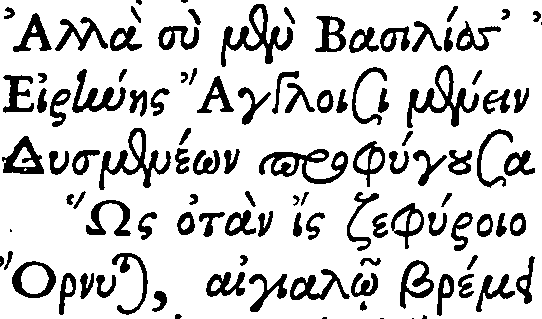 Ἀλλὰ σὺ μὲν Βασιλίσσ᾽
Εἰρήνης Ἄγγλοισι μένειν
Δυσμενέων προφύγουσα
Ὥς ὁτὰν ἲς ζεφύροιο
Ὄρνυται, αἰγιαλῷ βρέμει